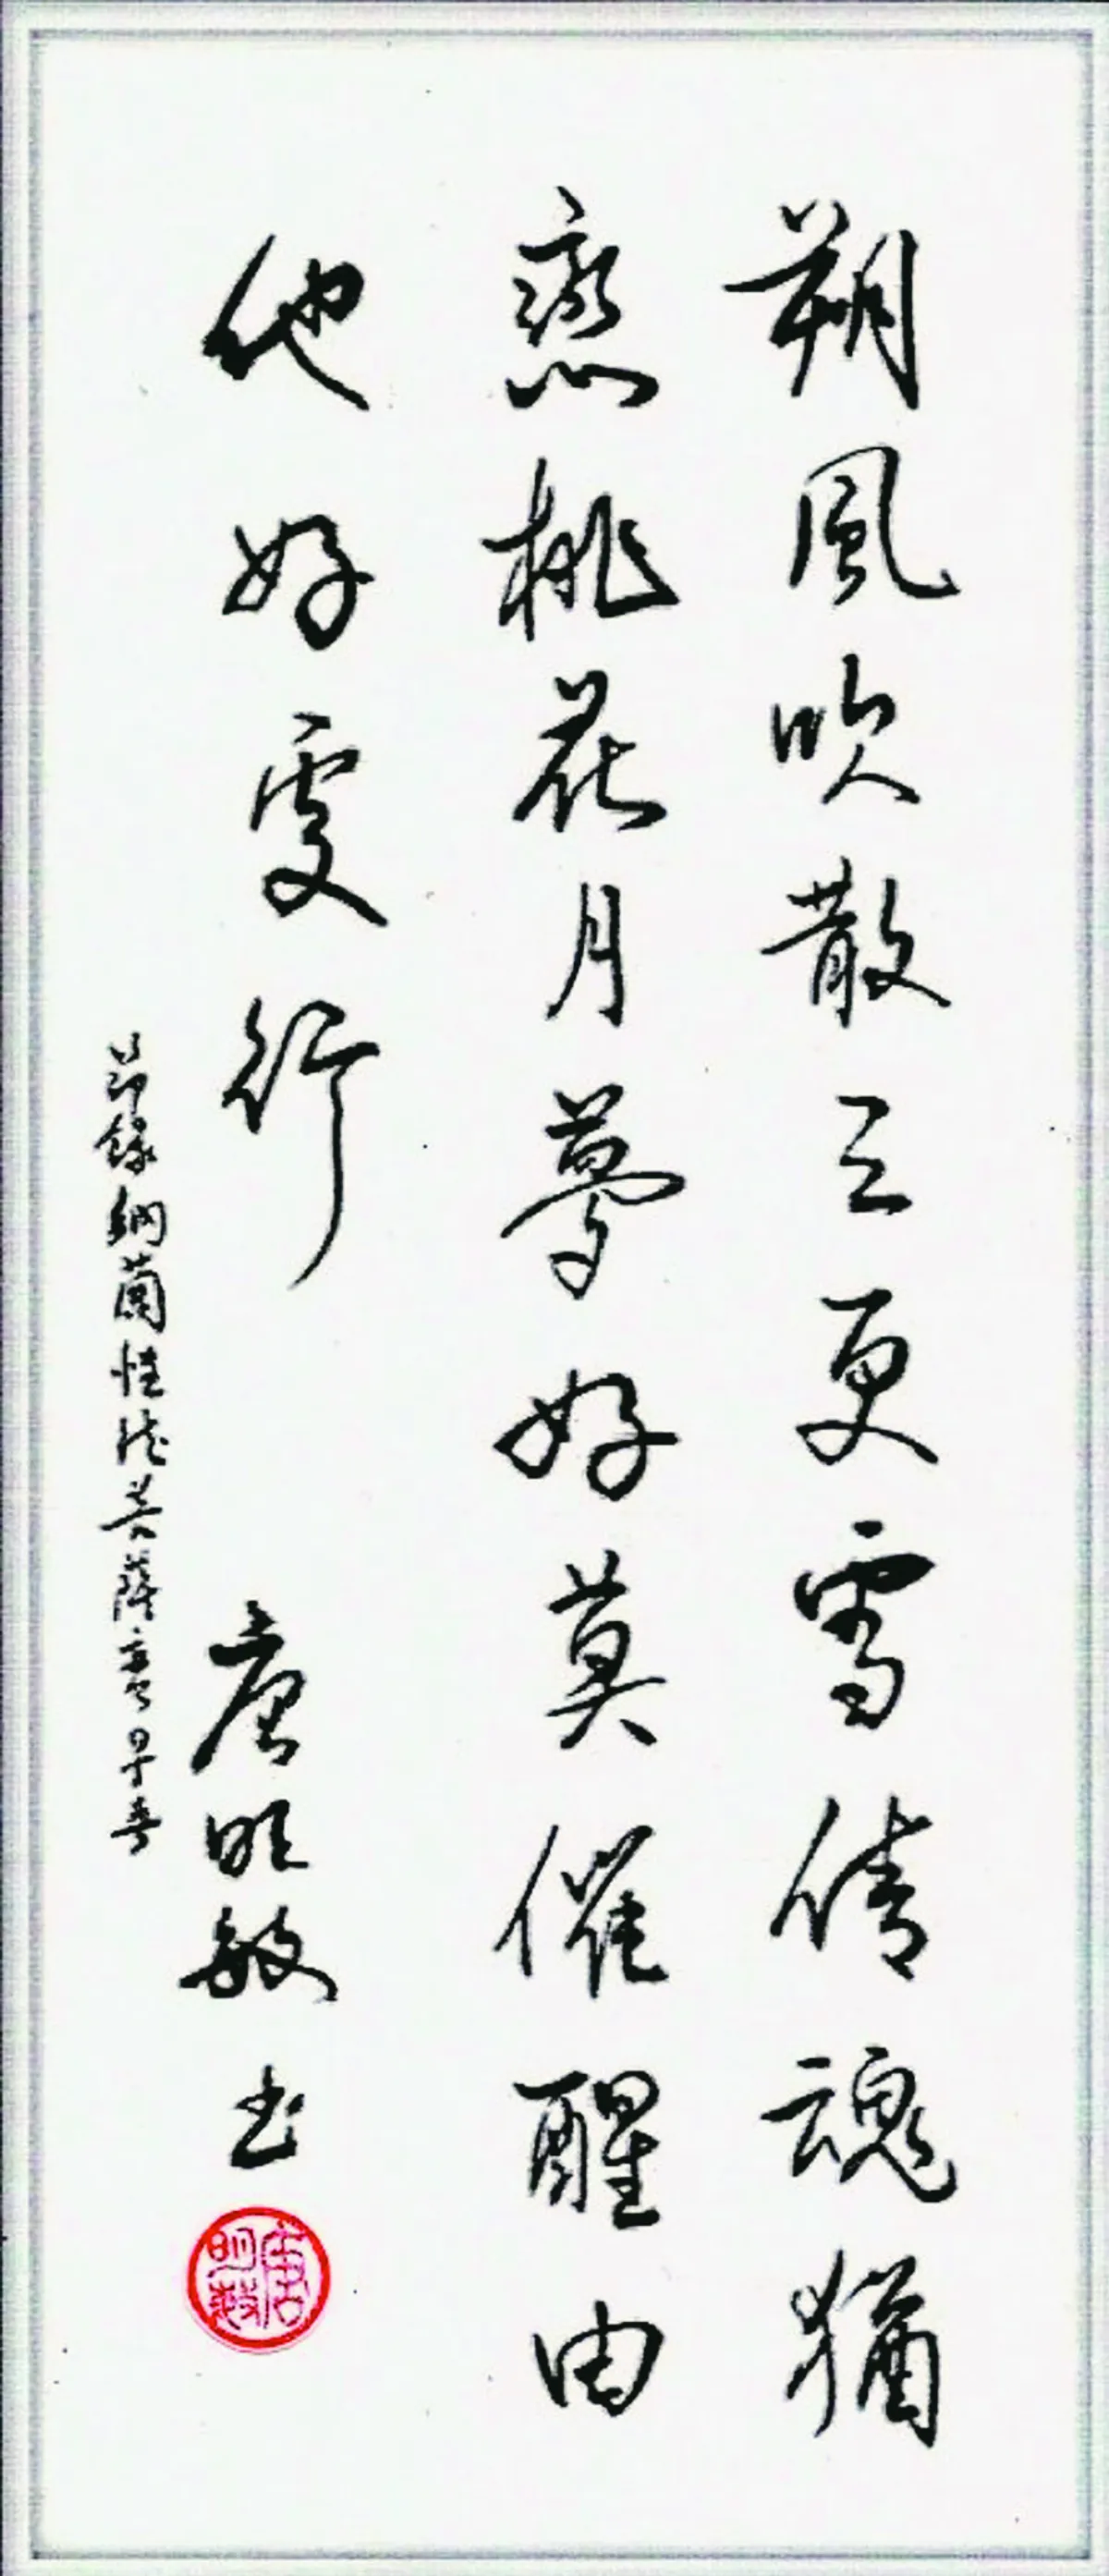 朔風吹散三更雪倩魂猶
戀桃花月夢好莫催醒由
他好處行
唐明敏书
節錄納蘭性德菩薩蠻早春
唐明敏